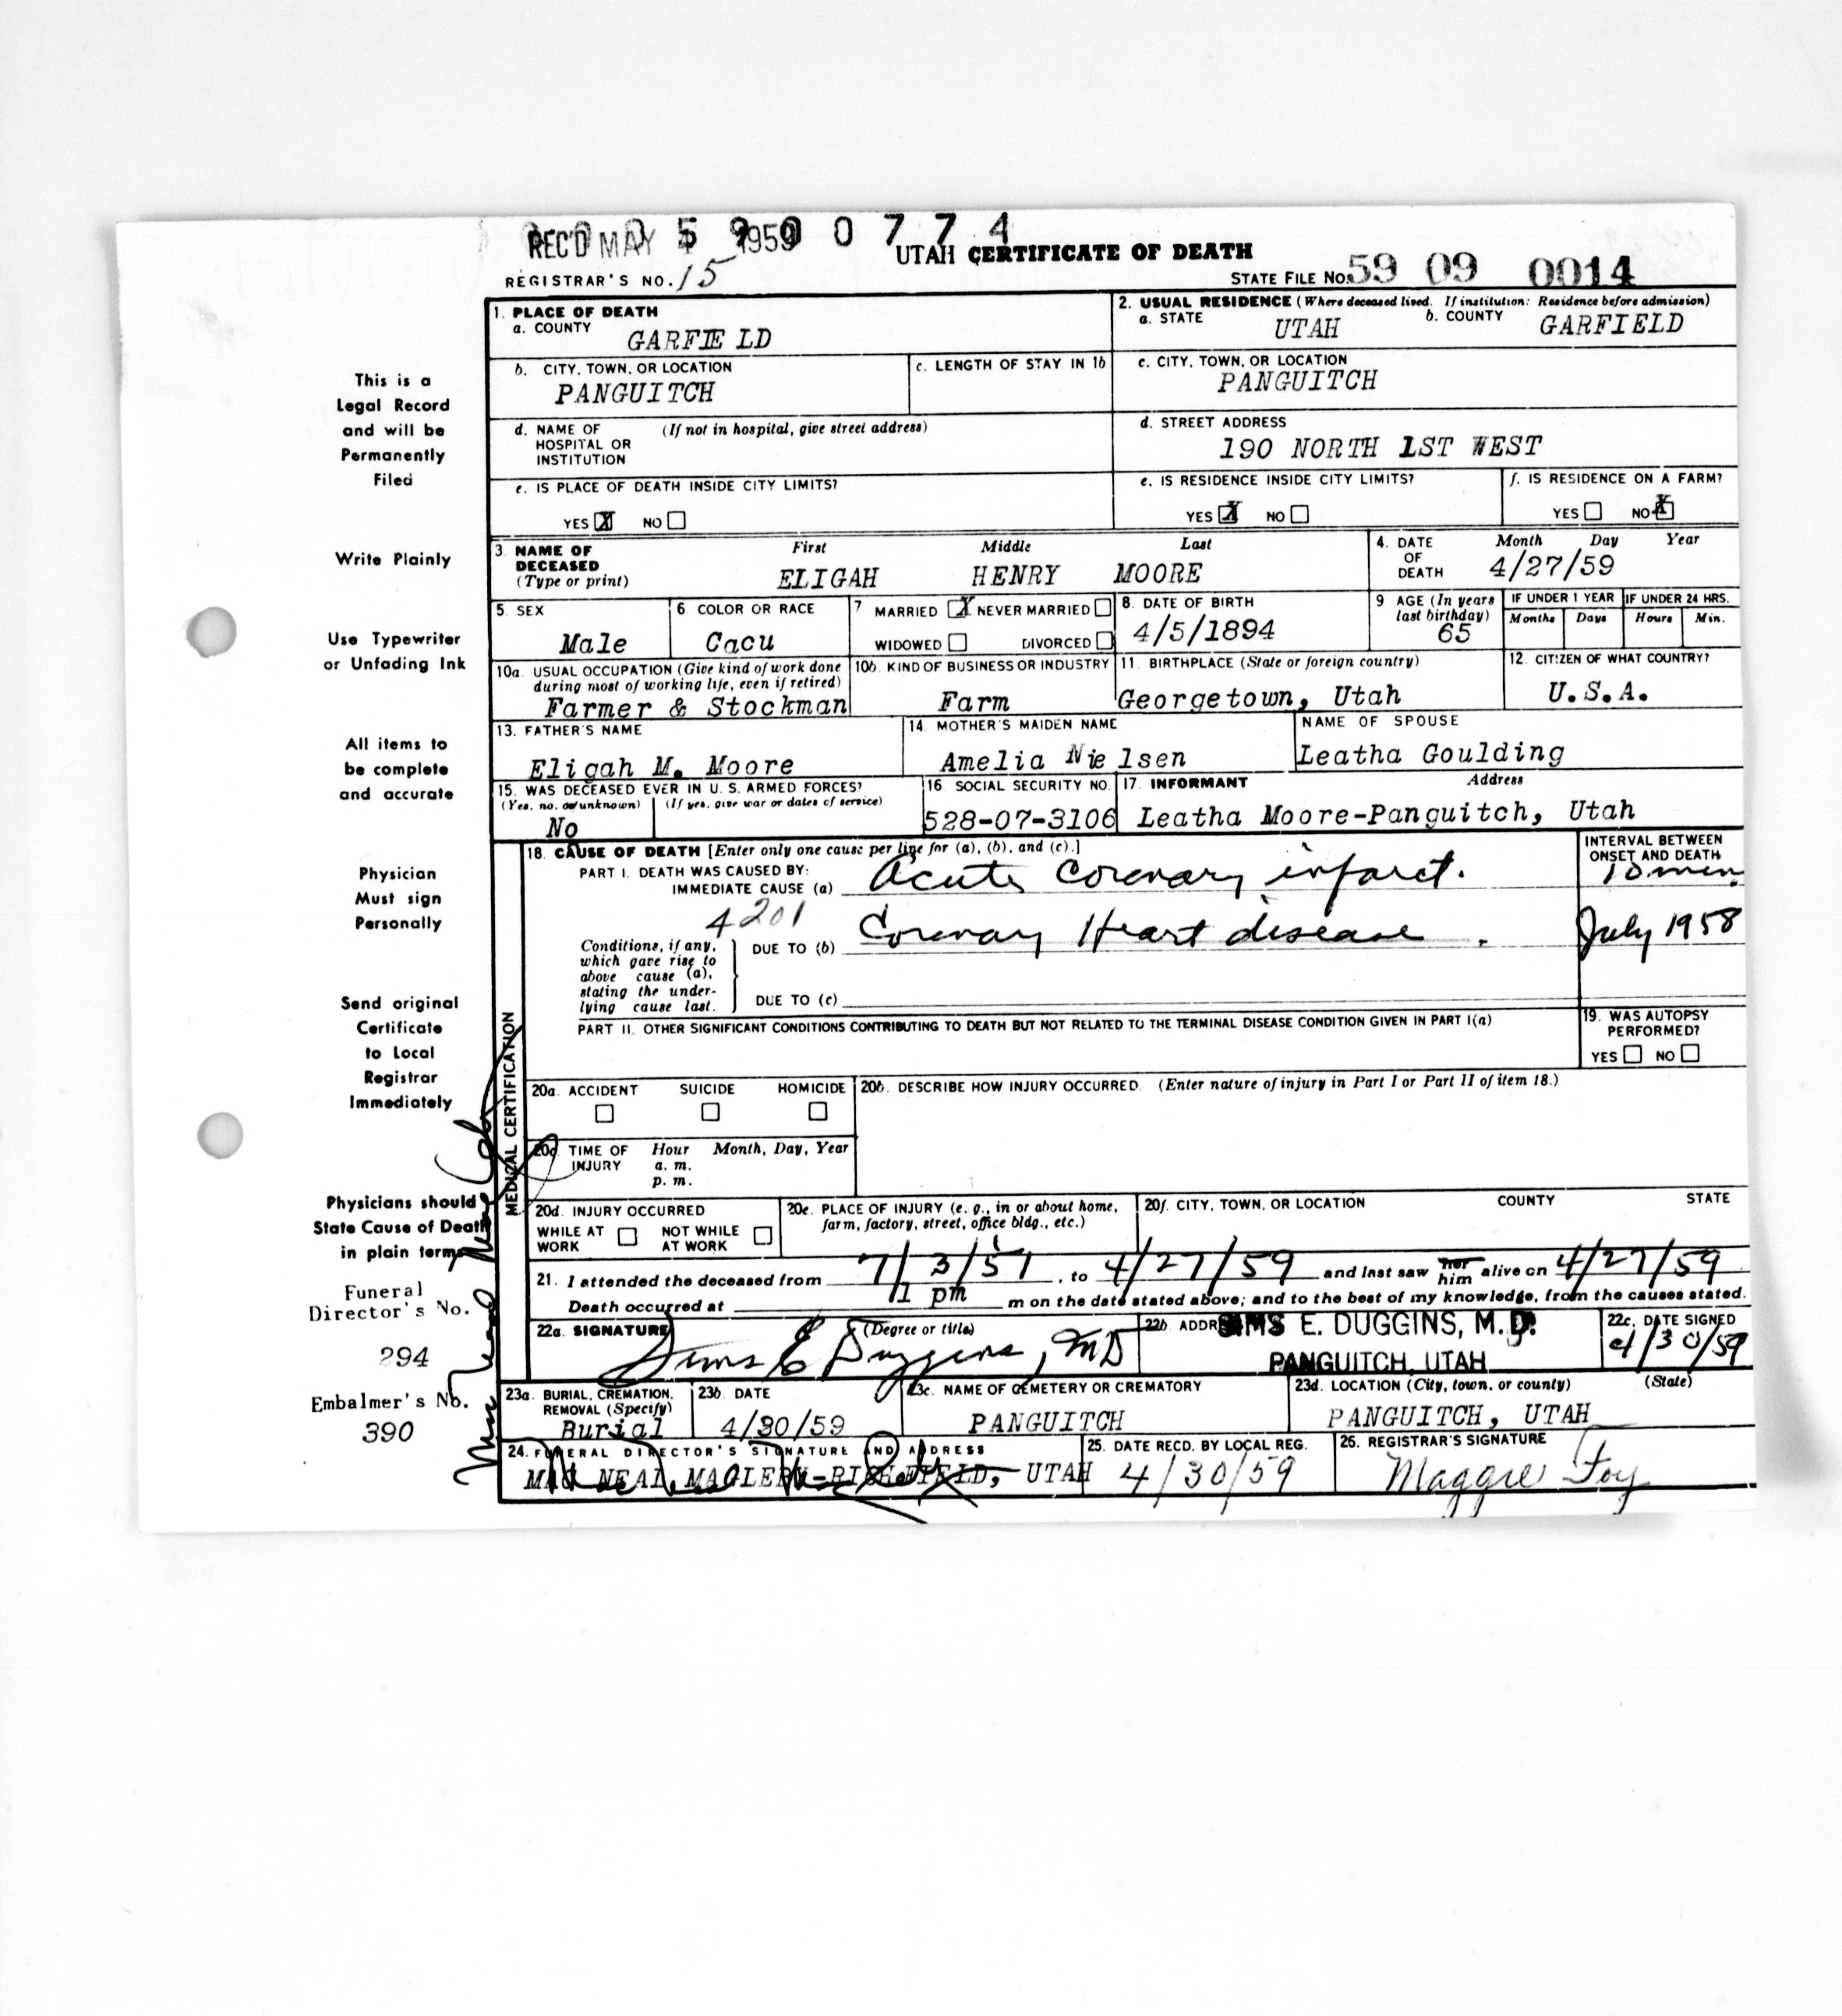 REC'D MAY 5 1959 9 0 0 7 7 4
UTAH CERTIFICATE OF DEATH
REGISTRAR'S NO. 15
STATE FILE NO. 59 09 0014
1. PLACE OF DEATH
a. COUNTY GARFIELD
2. USUAL RESIDENCE (Where deceased lived. If institution: Residence before admission)
a. STATE UTAH b. COUNTY GARFIELD
b. CITY, TOWN, OR LOCATION PANGUITCH
c. LENGTH OF STAY IN 1b
c. CITY, TOWN, OR LOCATION PANGUITCH
d. NAME OF HOSPITAL OR INSTITUTION (If not in hospital, give street address)
d. STREET ADDRESS 190 NORTH 1ST WEST
e. IS PLACE OF DEATH INSIDE CITY LIMITS?
YES X NO
e. IS RESIDENCE INSIDE CITY LIMITS?
YES X NO
f. IS RESIDENCE ON A FARM?
YES NO X
3. NAME OF DECEASED (Type or print)
First Middle Last
ELIGAH HENRY MOORE
4. DATE OF DEATH Month Day Year
4/27/59
5. SEX Male
6 COLOR OR RACE Cacu
7 MARRIED X NEVER MARRIED
WIDOWED DIVORCED
8. DATE OF BIRTH 4/5/1894
9 AGE (In years last birthday) 65
IF UNDER 1 YEAR Months Days
IF UNDER 24 HRS. Hours Min.
10a. USUAL OCCUPATION (Give kind of work done during most of working life, even if retired)
Farmer & Stockman
10b. KIND OF BUSINESS OR INDUSTRY Farm
11. BIRTHPLACE (State or foreign country) Georgetown, Utah
12. CITIZEN OF WHAT COUNTRY? U.S.A.
13. FATHER'S NAME Eligah M. Moore
14. MOTHER'S MAIDEN NAME Amelia Nielsen
NAME OF SPOUSE Leatha Goulding
15. WAS DECEASED EVER IN U. S. ARMED FORCES?
(Yes, no, or unknown) (If yes, give war or dates of service)
No
16. SOCIAL SECURITY NO. 528-07-3106
17. INFORMANT Address
Leatha Moore-Panguitch, Utah
18. CAUSE OF DEATH [Enter only one cause per line for (a), (b), and (c).]
INTERVAL BETWEEN ONSET AND DEATH
PART I. DEATH WAS CAUSED BY:
IMMEDIATE CAUSE (a) Acute Coronary infarct. 10 min.
4201
Conditions, if any, which gave rise to above cause (a), stating the underlying cause last.
DUE TO (b) Coronary Heart disease. July 1958
DUE TO (c)
PART II. OTHER SIGNIFICANT CONDITIONS CONTRIBUTING TO DEATH BUT NOT RELATED TO THE TERMINAL DISEASE CONDITION GIVEN IN PART I(a)
19. WAS AUTOPSY PERFORMED?
YES NO
MEDICAL CERTIFICATION
20a. ACCIDENT SUICIDE HOMICIDE
20b. DESCRIBE HOW INJURY OCCURRED. (Enter nature of injury in Part I or Part II of item 18.)
20c. TIME OF INJURY Hour a. m. p. m. Month, Day, Year
20d. INJURY OCCURRED
WHILE AT WORK NOT WHILE AT WORK
20e. PLACE OF INJURY (e. g., in or about home, farm, factory, street, office bldg., etc.)
20f. CITY, TOWN, OR LOCATION COUNTY STATE
21. I attended the deceased from 7/3/57, to 4/27/59 and last saw her him alive on 4/27/59
Death occurred at 1 pm m on the date stated above; and to the best of my knowledge, from the causes stated.
22a. SIGNATURE (Degree or title)
Sims E Duggins, MD
22b. ADDRESS SIMS E. DUGGINS, M. D.
PANGUITCH, UTAH
22c. DATE SIGNED 4/30/59
23a. BURIAL, CREMATION, REMOVAL (Specify) Burial
23b. DATE 4/30/59
23c. NAME OF CEMETERY OR CREMATORY PANGUITCH
23d. LOCATION (City, town, or county) (State)
PANGUITCH, UTAH
24. FUNERAL DIRECTOR'S SIGNATURE AND ADDRESS
NEAL MAGLEBY-RICHFIELD, UTAH
25. DATE RECD. BY LOCAL REG. 4/30/59
26. REGISTRAR'S SIGNATURE Maggie Foy
This is a
Legal Record
and will be
Permanently
Filed
Write Plainly
Use Typewriter
or Unfading Ink
All items to
be complete
and accurate
Physician
Must sign
Personally
Send original
Certificate
to Local
Registrar
Immediately
Physicians should
State Cause of Death
in plain terms
Funeral
Director's No.
294
Embalmer's No.
390